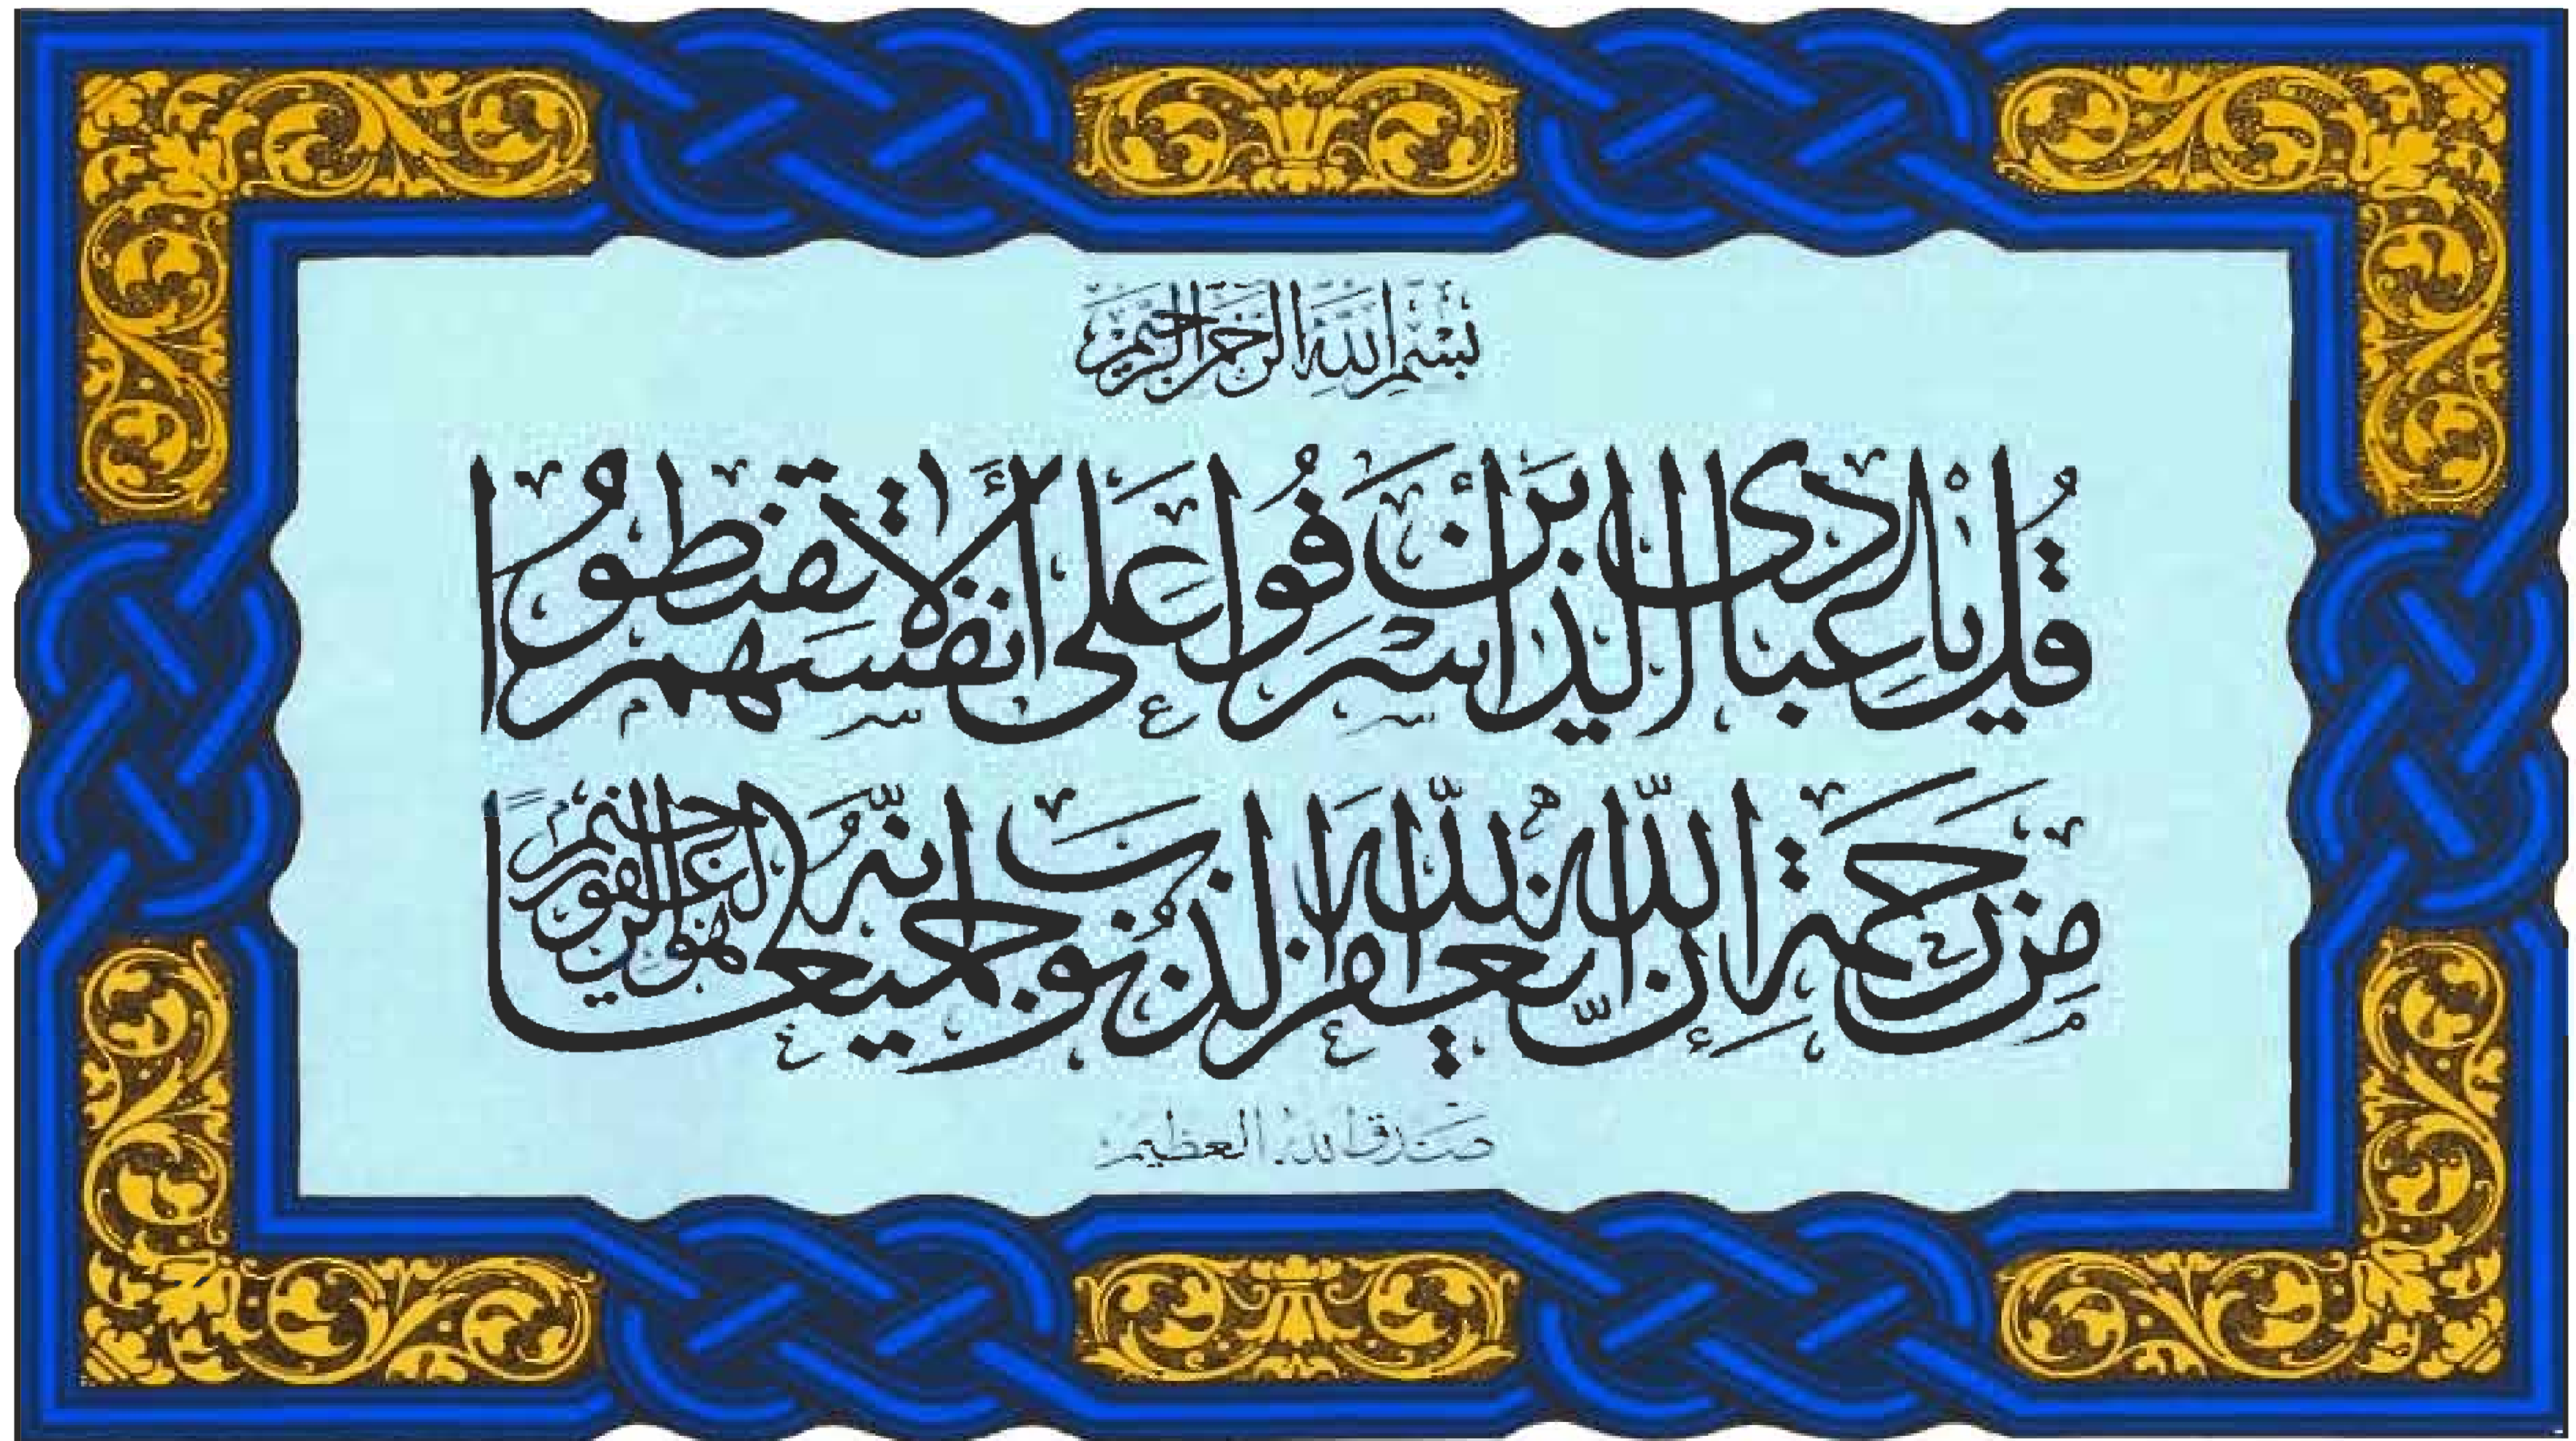 بِسْمِ اللَّهِ الرَّحْمَٰنِ الرَّحِيمِ
قُلْ يَا عِبَادِيَ الَّذِينَ أَسْرَفُوا عَلَىٰ أَنْفُسِهِمْ لَا تَقْنَطُوا
مِنْ رَحْمَةِ اللَّهِ إِنَّ اللَّهَ يَغْفِرُ الذُّنُوبَ جَمِيعًا إِنَّهُ هُوَ الْغَفُورُ الرَّحِيمُ
صَدَقَ اللَّهُ الْعَظِيمُ